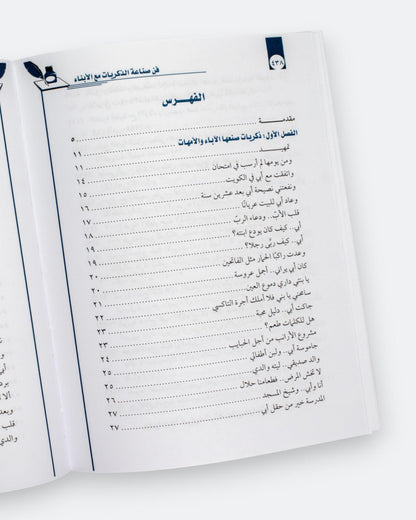 ٤٣٨
فن صناعة الذكريات مع الأبناء
الفهرس
مقدمة ٥
الفصل الأول: ذكريات صنعها الآباء والأمهات ١١
تمهيد ١١
ومن يومها لم أرسب في امتحان ١٤
واتفقت مع أبي في الكويت ١٥
ونفعتني نصيحة أبي بعد عشرين سنة ١٦
وعاد أبي للبيت عريانًا ١٧
قلب الأب.. ودعاء الرب ١٨
أبي.. كيف كان يودع ابنته؟ ١٩
أبي.. كيف ربّى رجلا؟ ١٩
وعدت راكبًا الحمار مثل الفاتحين ٢٠
كان أبي يراني.. أجمل عروسة ٢٠
يا بنتي داري دموع العين ٢١
سامحني يا بني فلا أملك أجرة التاكسي ٢٢
جاكت أبي.. دليل محبة ٢٣
هل للكلمات طعم؟ ٢٣
مشروع الأرانب من أجل الحبايب ٢٤
جاموسة أبي.. ولبن أطفالي ٢٥
والد صديقي.. ليته والدي ٢٥
لا تخش المرض.. فطعامنا حلال ٢٦
أنا وأبي.. وشيخ المسجد ٢٧
المدرسة خير من حقل أبي ٢٧